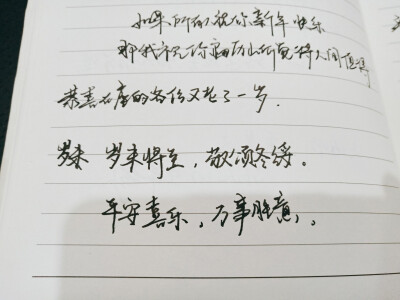 如果所有人祝你新年快乐
那我祝你遍历山河觉得人间值得
恭喜在座的各位又老了一岁.
岁末 岁末将至，敬颂冬绥。
平安喜乐，万事胜意。